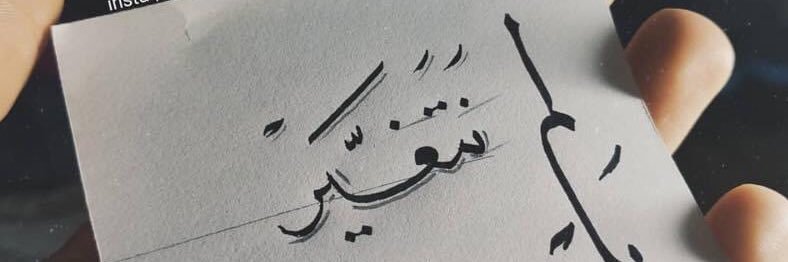 insta
لم نتغيّر